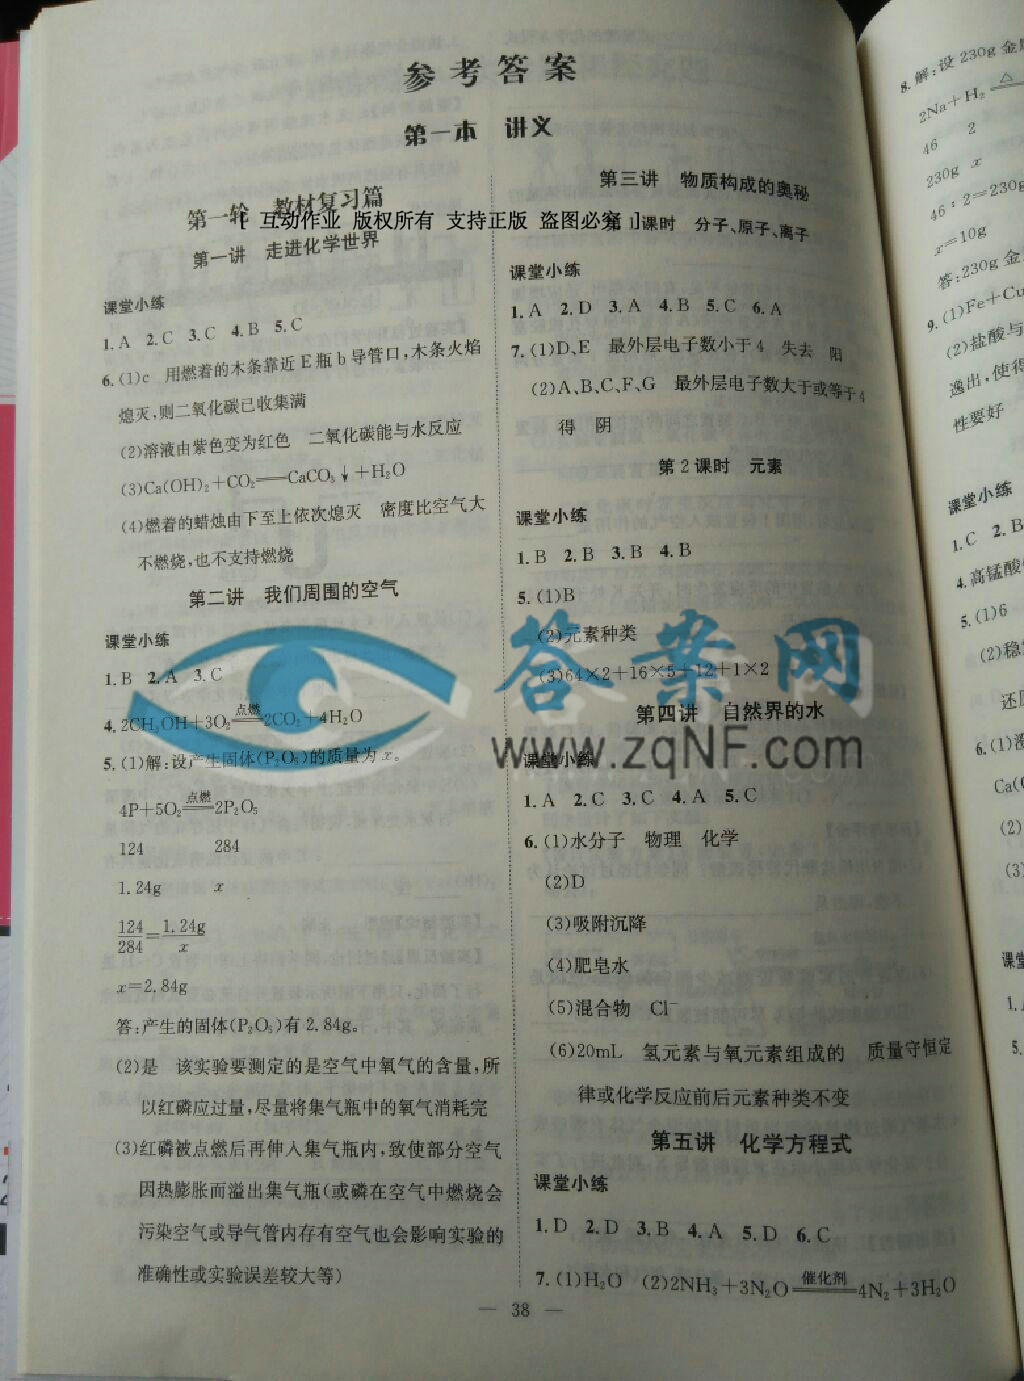 参考答案
第一本 讲义
第一轮 教材复习篇
[ 互动作业 版权所有 支持正版 盗图必究 ]
第一讲 走进化学世界
课堂小练
1.A 2.C 3.C 4.B 5.C
6.(1)c 用燃着的木条靠近E瓶b导管口,木条火焰
熄灭,则二氧化碳已收集满
(2)溶液由紫色变为红色 二氧化碳能与水反应
(3)Ca(OH)₂+CO₂══CaCO₃↓+H₂O
(4)燃着的蜡烛由下至上依次熄灭 密度比空气大
不燃烧,也不支持燃烧
第二讲 我们周围的空气
课堂小练
1.B 2.A 3.C
4.2CH₃OH+3O₂ 点燃══ 2CO₂+4H₂O
5.(1)解:设产生固体(P₂O₅)的质量为x。
4P+5O₂ 点燃══ 2P₂O₅
124 284
1.24g x
124/284=1.24g/x
x=2.84g
答:产生的固体(P₂O₅)有2.84g。
(2)是 该实验要测定的是空气中氧气的含量,所
以红磷应过量,尽量将集气瓶中的氧气消耗完
(3)红磷被点燃后再伸入集气瓶内,致使部分空气
因热膨胀而溢出集气瓶(或磷在空气中燃烧会
污染空气或导气管内存有空气也会影响实验的
准确性或实验误差较大等)
第三讲 物质构成的奥秘
课时 分子、原子、离子
课堂小练
1.A 2.D 3.A 4.B 5.C 6.A
7.(1)D、E 最外层电子数小于4 失去 阳
(2)A、B、C、F、G 最外层电子数大于或等于4
得 阴
第2课时 元素
课堂小练
1.B 2.B 3.B 4.B
5.(1)B
(2)元素种类
(3)64×2+16×5+12+1×2
第四讲 自然界的水
课堂小练
1.A 2.C 3.C 4.A 5.C
6.(1)水分子 物理 化学
(2)D
(3)吸附沉降
(4)肥皂水
(5)混合物 Cl⁻
(6)20mL 氢元素与氧元素组成的 质量守恒定
律或化学反应前后元素种类不变
第五讲 化学方程式
课堂小练
1.D 2.D 3.B 4.A 5.D 6.C
7.(1)H₂O (2)2NH₃+3N₂O 催化剂══ 4N₂+3H₂O
— 38 —
答案网
www.zqNF.com
8.解:设230g金
2Na+H₂ △══
46 2
230g x
46:2=230g
x=10g
答:230g金
9.(1)Fe+Cu
(2)盐酸与
逸出,使得
性要好
课堂小练
1.C 2.B
4.高锰酸
5.(1)6
(2)稳
还
6.(1)
Ca(
(2)
(3)
课堂
1.
5.